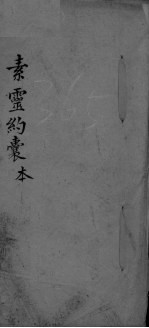 素靈約囊本